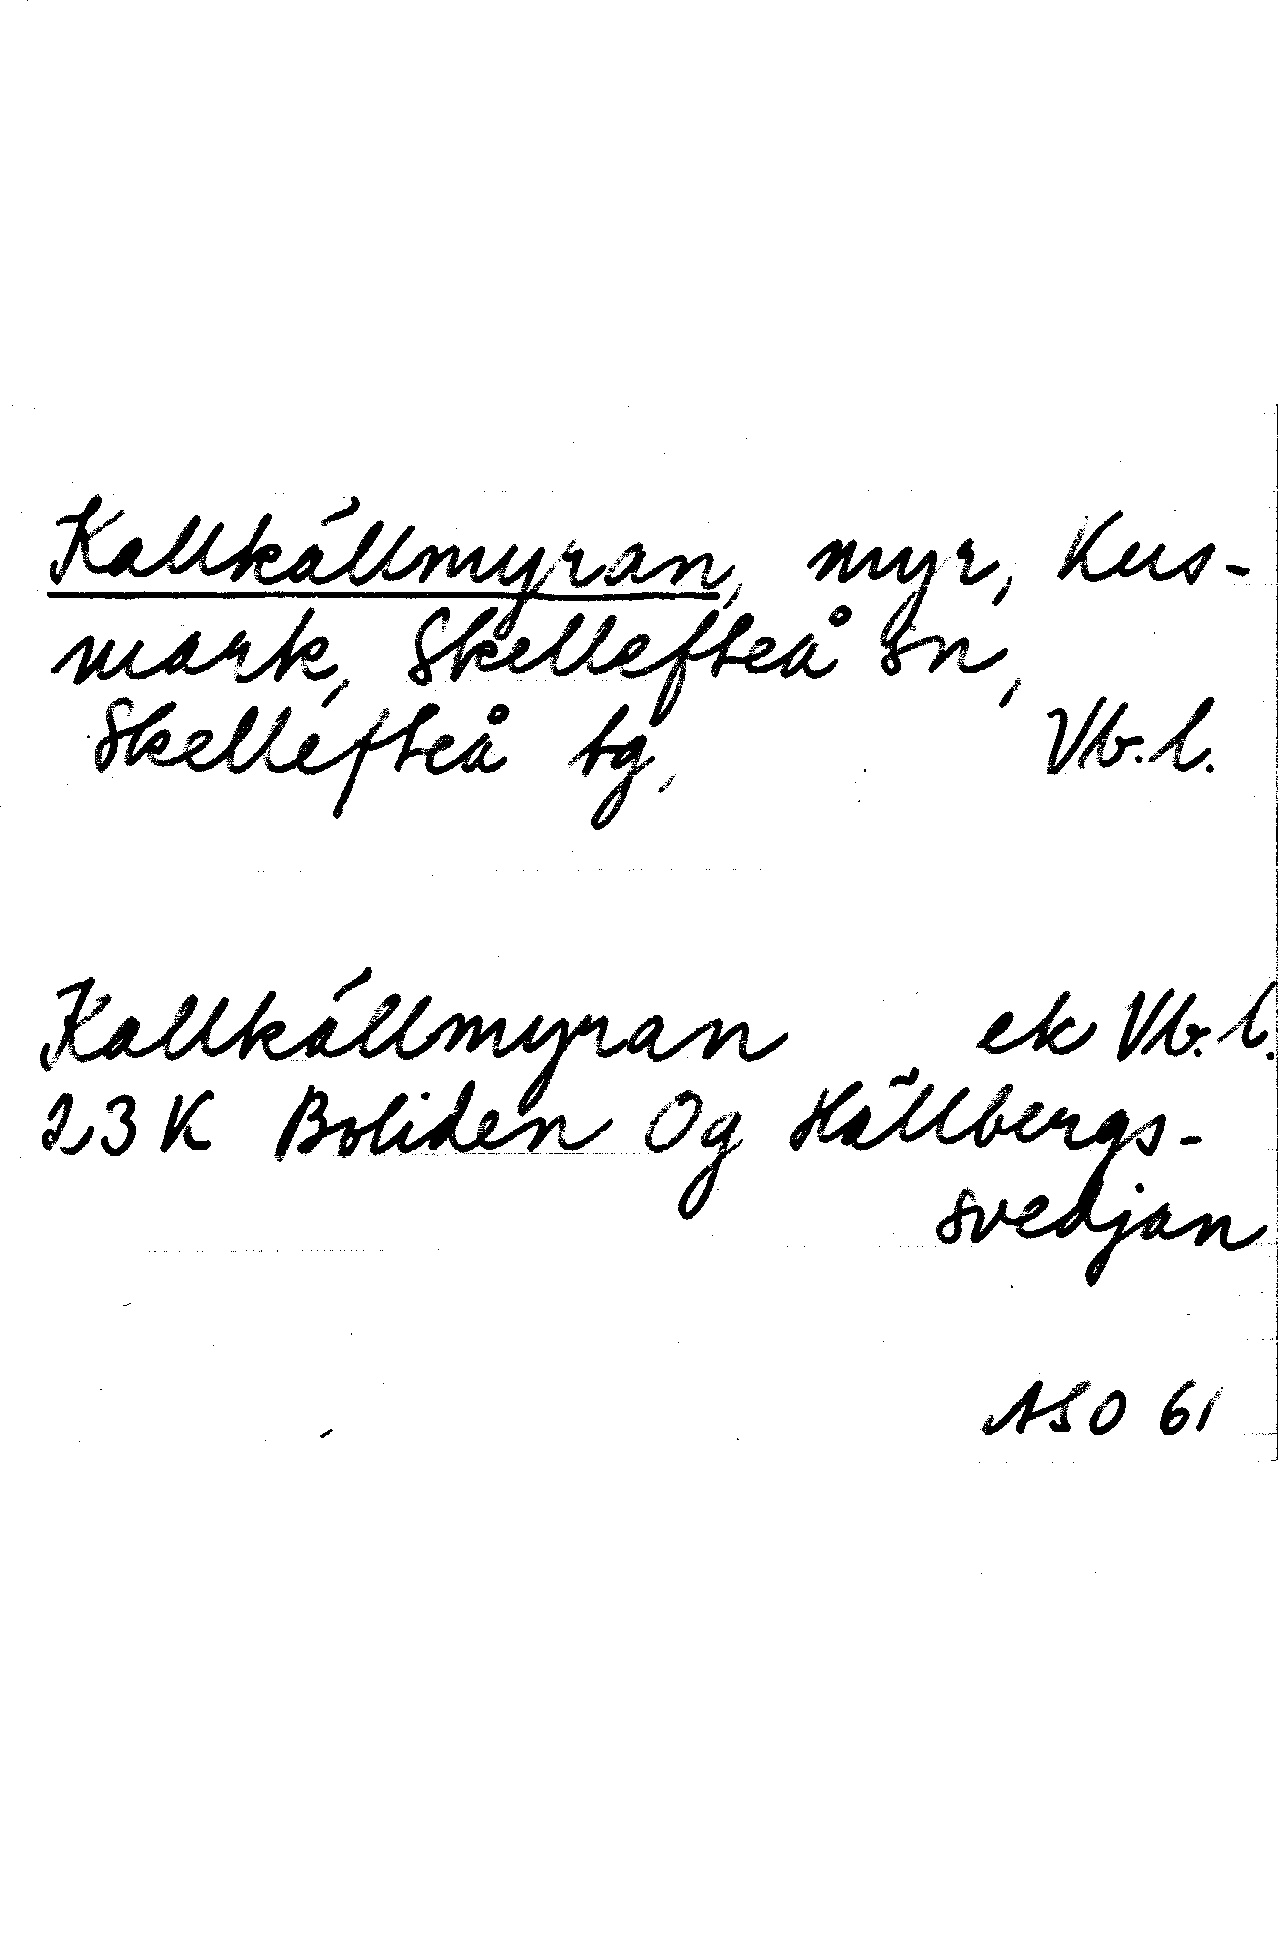 Kallkällmyran, myr, Kus-
mark, Skellefteå sn,
Skellefteå tg, Vb.l.
Kallkällmyran ek Vb.l.
23 K Boliden Og Hällbergs-
svedjan
ASO 61